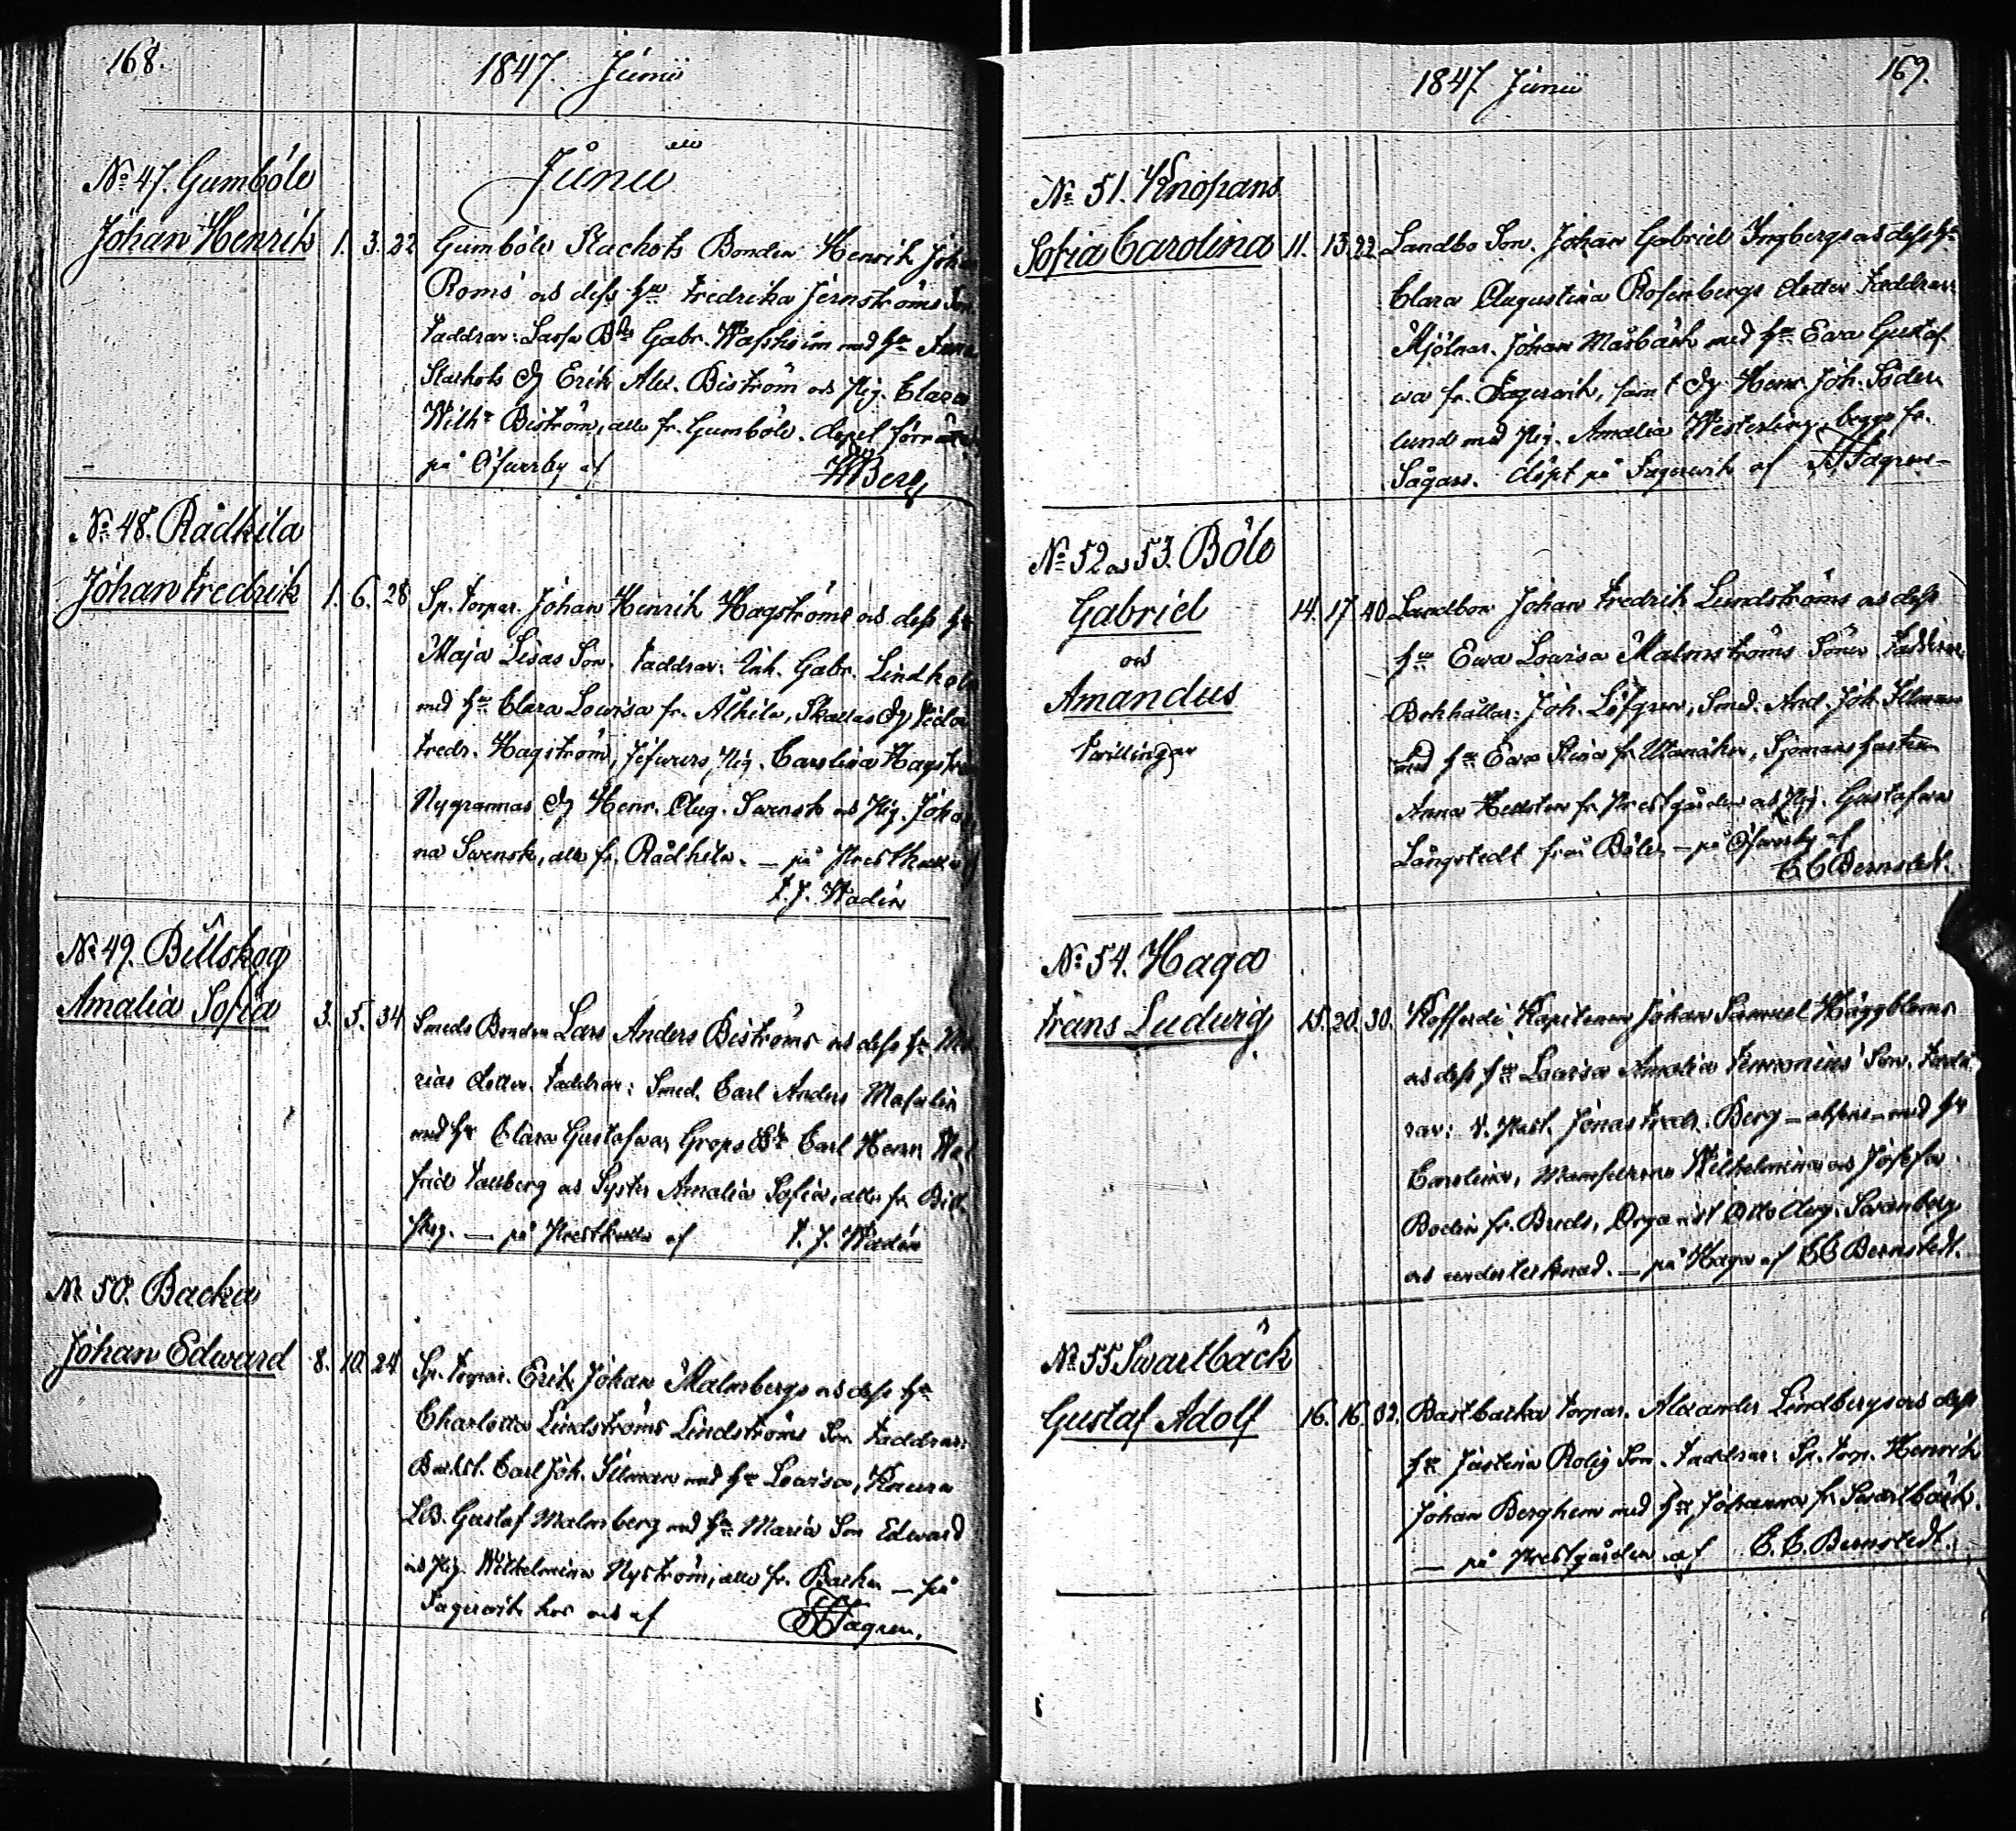 168.
1847. Junii
Junii
No 47. Gumböle
Johan Henrik 1. 3. 22 Gumböle Stachots Bonden Henrik Joh
Roms ock dess hu Fredrika Jernströms Son
Faddrar: Sassa Bdn Gabr. Wasström med hu Anna
Stachots Dg Erik Alex. Biström ock Pig. Clara
Wilh:a Biström, alla fr. Gumböle. Döpet förrätt
på Ofvurby af HBerg
No 48. Rådkila
Johan Fredrik 1. 6. 28 Sp. Torpar. Johan Henrik Hagströms ock dess hu
Maja Lisas Son. Faddrar: Enk. Gabr. Lindhol
med hu Clara Lovisa fr. Alkila, Skallas Dg Fidor
Fredr. Hagström, Pig. Carolina Hagström
Nygrannas Dg Henr. Aug. Svensk ock Pig. Johan
na Svensk, alla fr. Rådkila. — på Prestkulla af
F. J. Wadén
No 49. Billskog
Amalia Sofia 3. 5. 34 Smeds Bonden Lars Anders Biströms ock dess hu Ma
rias dotter. Faddrar: Smed. Carl Anders Masalin
med hu Clara Gustafva, Grops Carl Henr. Wal
frid Tallberg ock Syster Amalia Sofia, alla fr. Bill
skog. — på Prestkulla af F. J. Wadén
No 50. Backa
Johan Edward 8. 10. 24 Sp. Torpar. Erik Johan Malmbergs ock dess hu
Charlotta Lindströms Lindströms Son Faddrar:
Backst. Carl Joh. Ilman med hu Lovisa, Knura
LB. Gustaf Malmberg med hu Maria Son Edward
ock Pig. Wilhelmina Nyström, alla fr. Backa — på
Fagervik hos ock af Fagren.
1847 Junii
169.
No 51. Knopans
Sofia Carolina 11. 13. 22 Landbo Son. Johan Gabriel Ingbergs ock dess hu
Clara Augustina Rosenbergs dotter Faddrar:
Mjölnar. Johan Måsbäck med hu Eva Gustaf
va fr. Fagervik, samt Dg Henr. Joh. Söder
lund med Pig. Amalia Westerling, begge fr.
Sågars. döpt på Fagervik af Fagren
No 52 ock 53. Böle
Gabriel 14. 17. 40 Landbon Johan Fredrik Lundströms ock dess
ock
Amandus
Tvillingar
hu Eva Lovisa Malmströms Söner Faddrar:
Bokhållar. Joh. Löfgren, Smed. And. Joh. Ilman
med hu Eva Stina fr. Wanåker, Sjömans hustru
Anna Hellsten fr. Prestgården ock Pig. Gustafva
Långstedt från Böle — på Ofvurby af
C. C. Bernstedt.
No 54. Haga
Frans Ludvig 15. 20. 30. Kofferdi Kapitenen Johan Samuel Häggbloms
ock dess hu Lovisa Amalia Fennonius' Son. Fadd
rar: V. Past. Jonas Fredr. Berg — absens — med hu
Carolina, Mamsellerna Wilhelmina ock Josefa
Bodin fr. Breds, Organist Otto Aug. Svanberg
ock undertecknad. — på Haga af C C Bernstedt.
No 55 Svartbäck
Gustaf Adolf 16. 16. 32. Bastbacka Torpar. Alexander Lindbergs ock dess
hu Justina Rolig Son. Faddrar: Sp. Torp. Henrik
Johan Berghem med hu Johanna fr. Svartbäck.
— på Prestgården af C. C. Bernstedt.